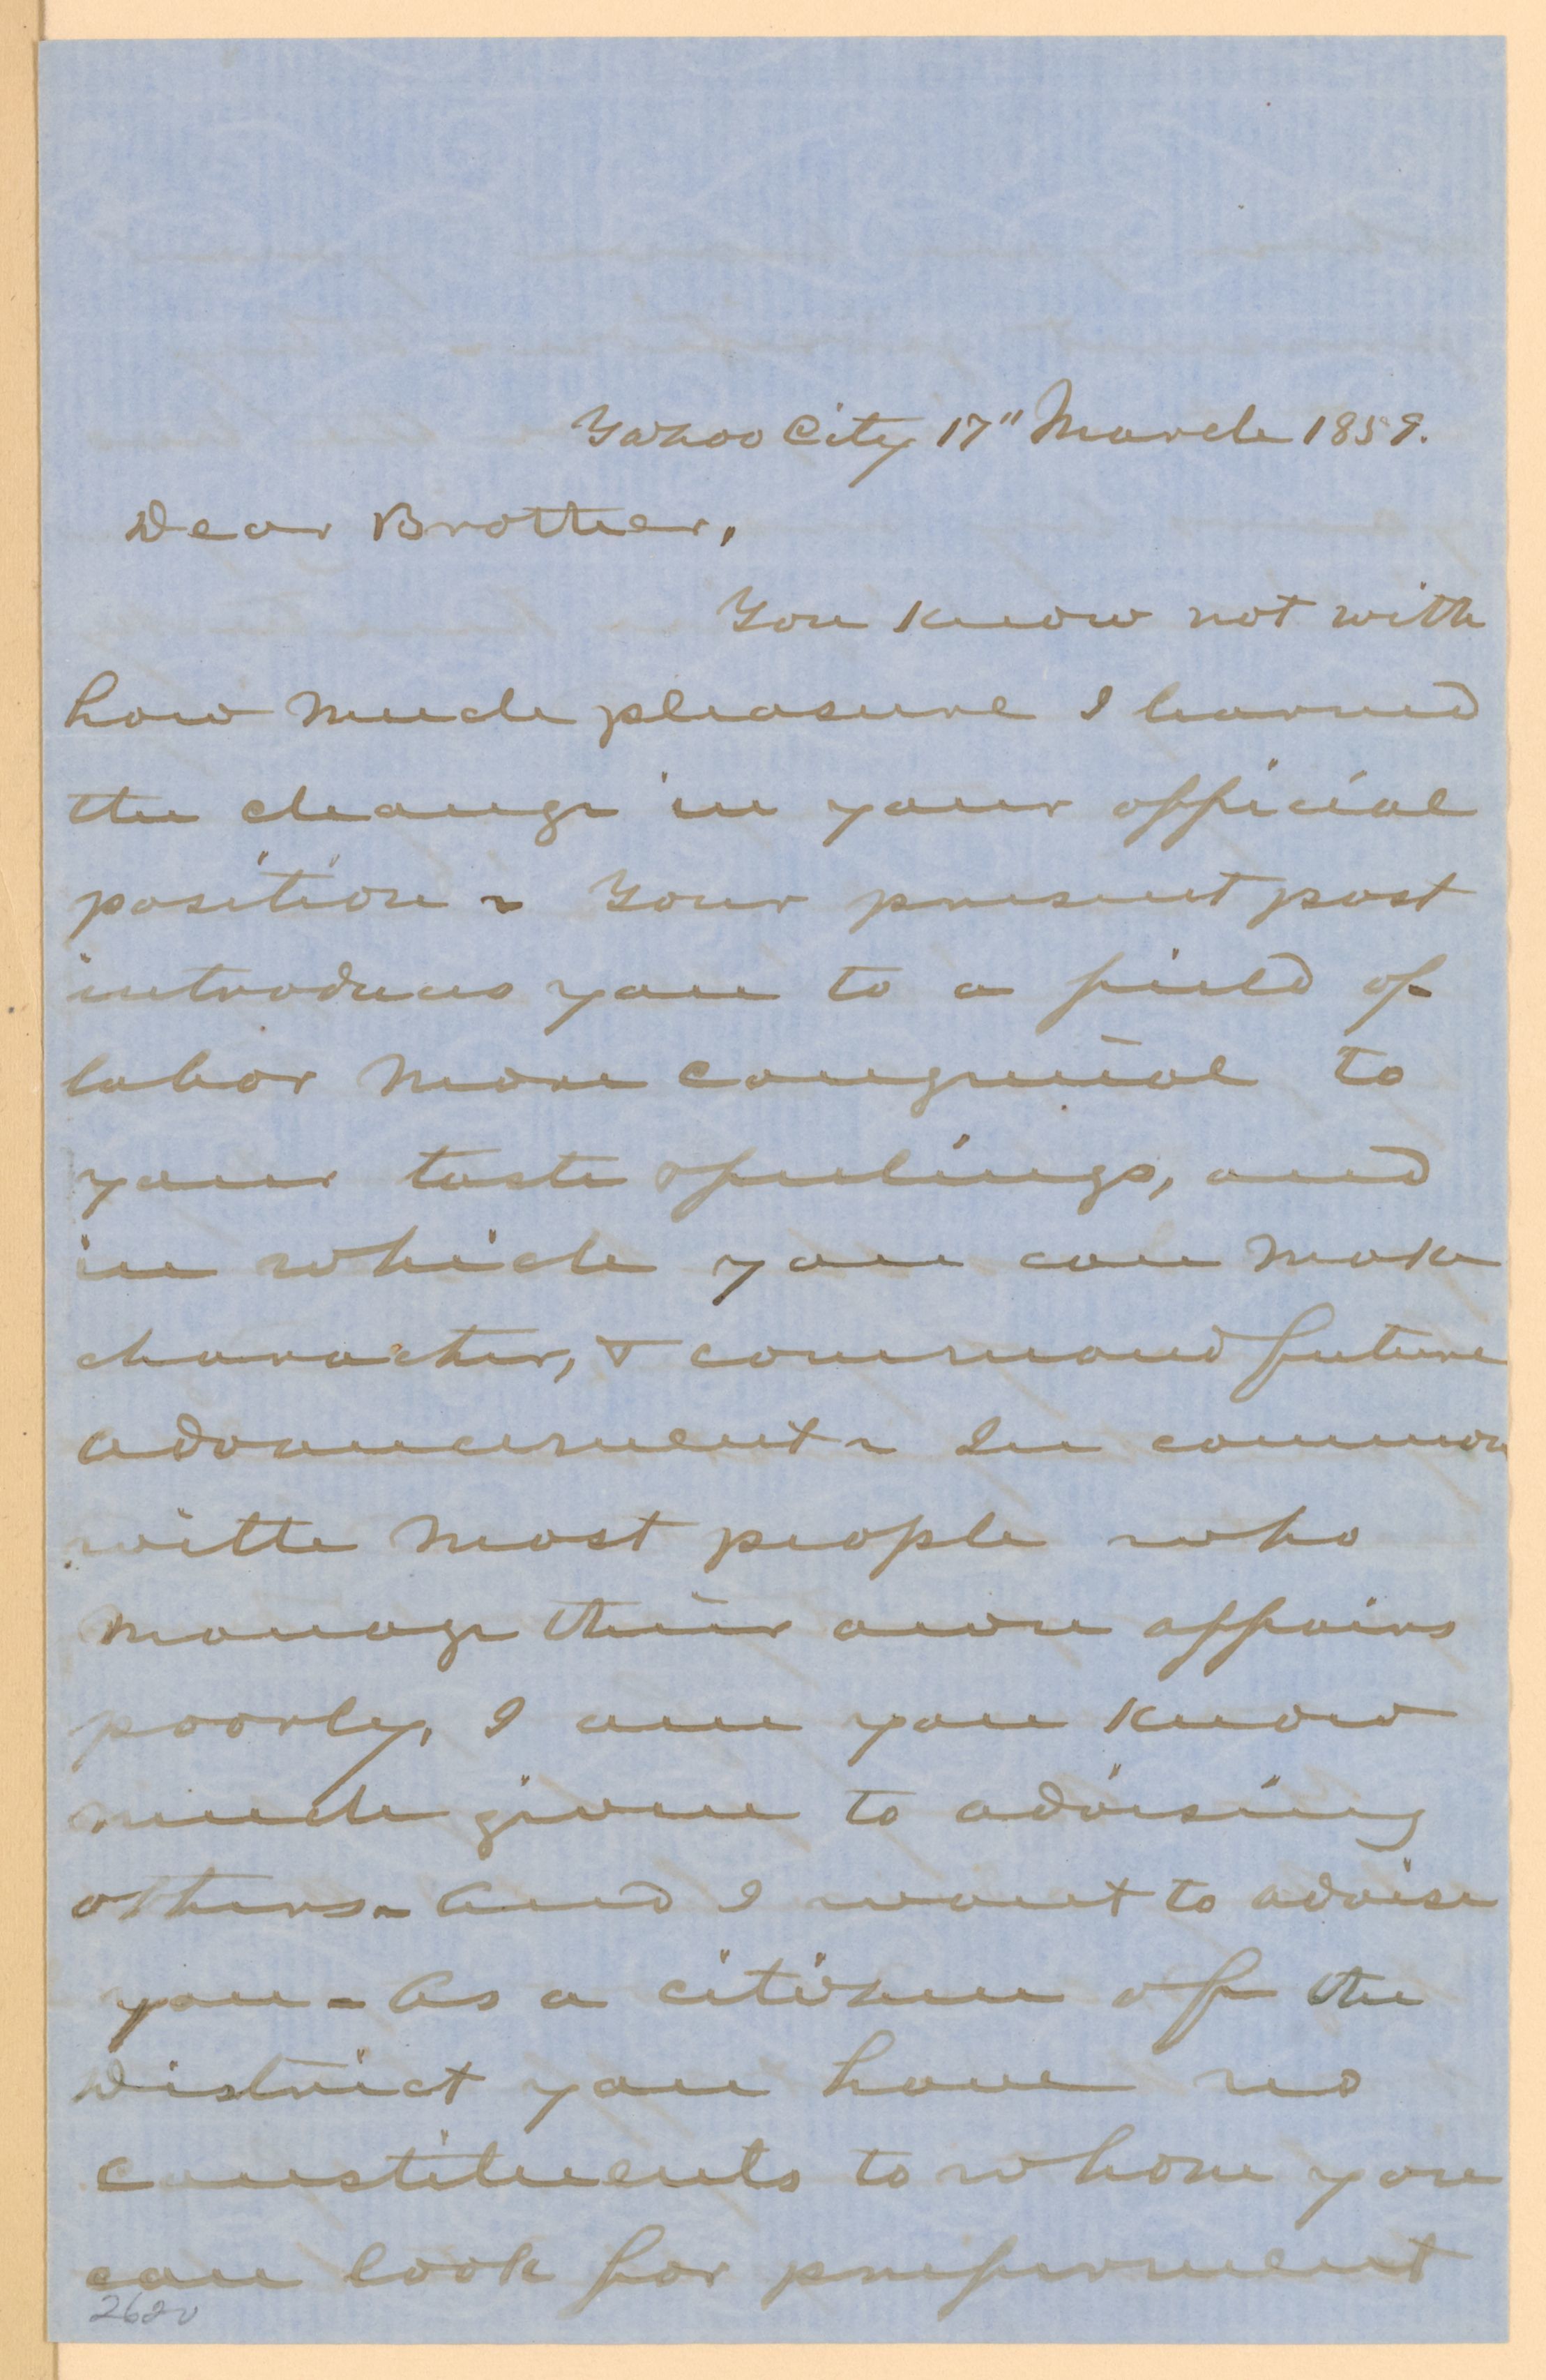 Yazoo City 17" March 1859.
Dear Brother,
You know not with
how much pleasure I learned
the change in your official
position - Your present post
introduces you to a field of
labor more congenial to
your taste & feelings, and
in which you can make
character, & command future
advancement - In common
with most people who
manage their own affairs
poorly, I am you know
much given to advising
others - And I want to advise
you - As a citizen of the
District you have no
constituents to whom you
can look for preferment
2620